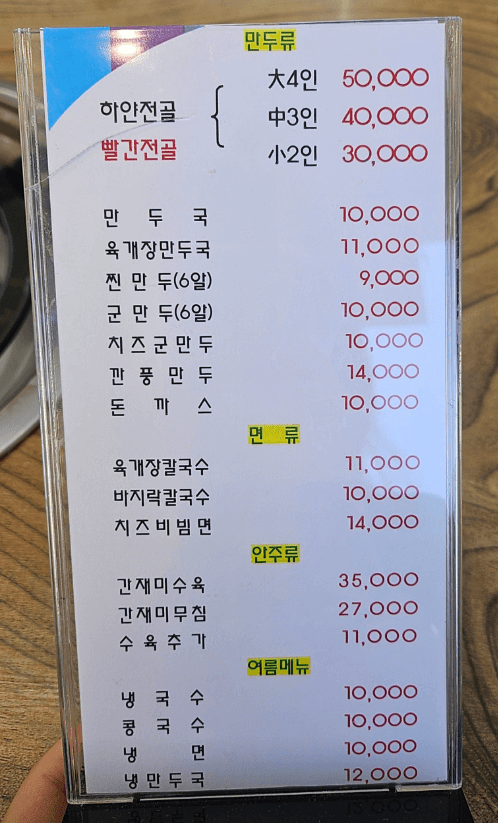 만두류
大4인 50,000
하얀전골
中3인 40,000
빨간전골
小2인 30,000
만두국 10,000
육개장만두국 11,000
찐만두(6알) 9,000
군만두(6알) 10,000
치즈군만두 10,000
깐풍만두 14,000
돈까스 10,000
면류
육개장칼국수 11,000
바지락칼국수 10,000
치즈비빔면 14,000
안주류
간재미수육 35,000
간재미무침 27,000
수육추가 11,000
여름메뉴
냉국수 10,000
콩국수 10,000
냉면 10,000
냉만두국 12,000